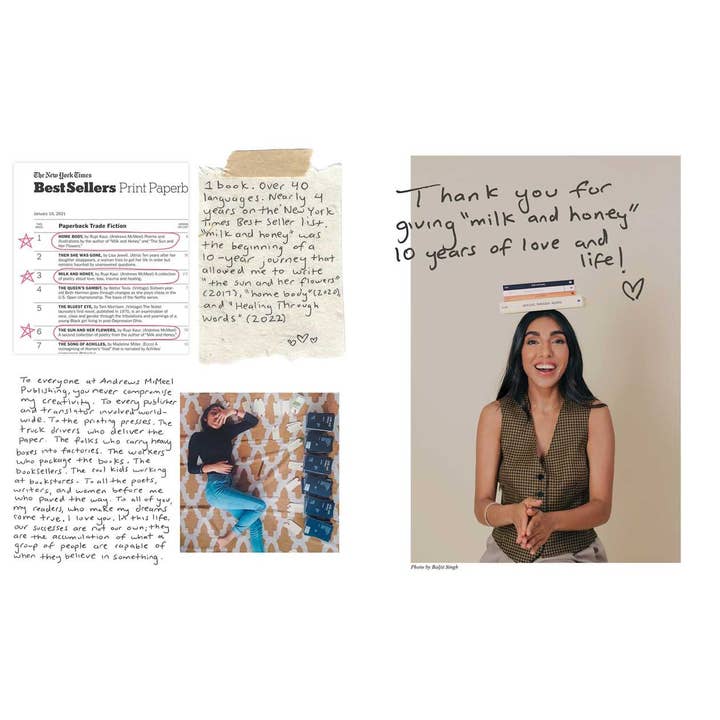 The New York Times
Best Sellers Print Paperb
January 10, 2021
Paperback Trade Fiction
1 HOME BODY, by Rupi Kaur. (Andrews McMeel) Poems and
illustrations by the author of "Milk and Honey" and "The Sun and
Her Flowers."
2 THEN SHE WAS GONE, by Lisa Jewell. (Atria) Ten years after her
daughter disappears, a woman tries to get her life in order but
remains haunted by unanswered questions.
3 MILK AND HONEY, by Rupi Kaur. (Andrews McMeel) A collection
of poetry about love, loss, trauma and healing.
4 THE QUEEN'S GAMBIT, by Walter Tevis. (Vintage)
5 THE BLUEST EYE, by Toni Morrison. (Vintage)
6 THE SUN AND HER FLOWERS, by Rupi Kaur. (Andrews McMeel)
A second collection of poetry from the author of "Milk and Honey."
7 THE SONG OF ACHILLES, by Madeline Miller. (Ecco) A
reimagining of Homer's "Iliad" that is narrated by Achilles'
1 book. Over 40
languages. Nearly 4
years on the New York
Times Best Seller list.
"milk and honey" was
the beginning of a
10-year journey that
allowed me to write
"the sun and her flowers"
(2017), "home body" (2020)
and "Healing Through
Words" (2022)
To everyone at Andrews McMeel
Publishing, you never compromise
my creativity. To every publisher
and translator involved world-
wide. To the printing presses. The
truck drivers who deliver the
paper. The folks who carry heavy
boxes into factories. The workers
who package the books. The
booksellers. The cool kids working
at bookstores. To all the poets,
writers, and women before me
who paved the way. To all of you,
my readers, who make my dreams
come true, I love you. In this life,
our successes are not our own; they
are the accumulation of what a
group of people are capable of
when they believe in something.
Thank you for
giving "milk and honey"
10 years of love and
life!
Photo by Baljit Singh